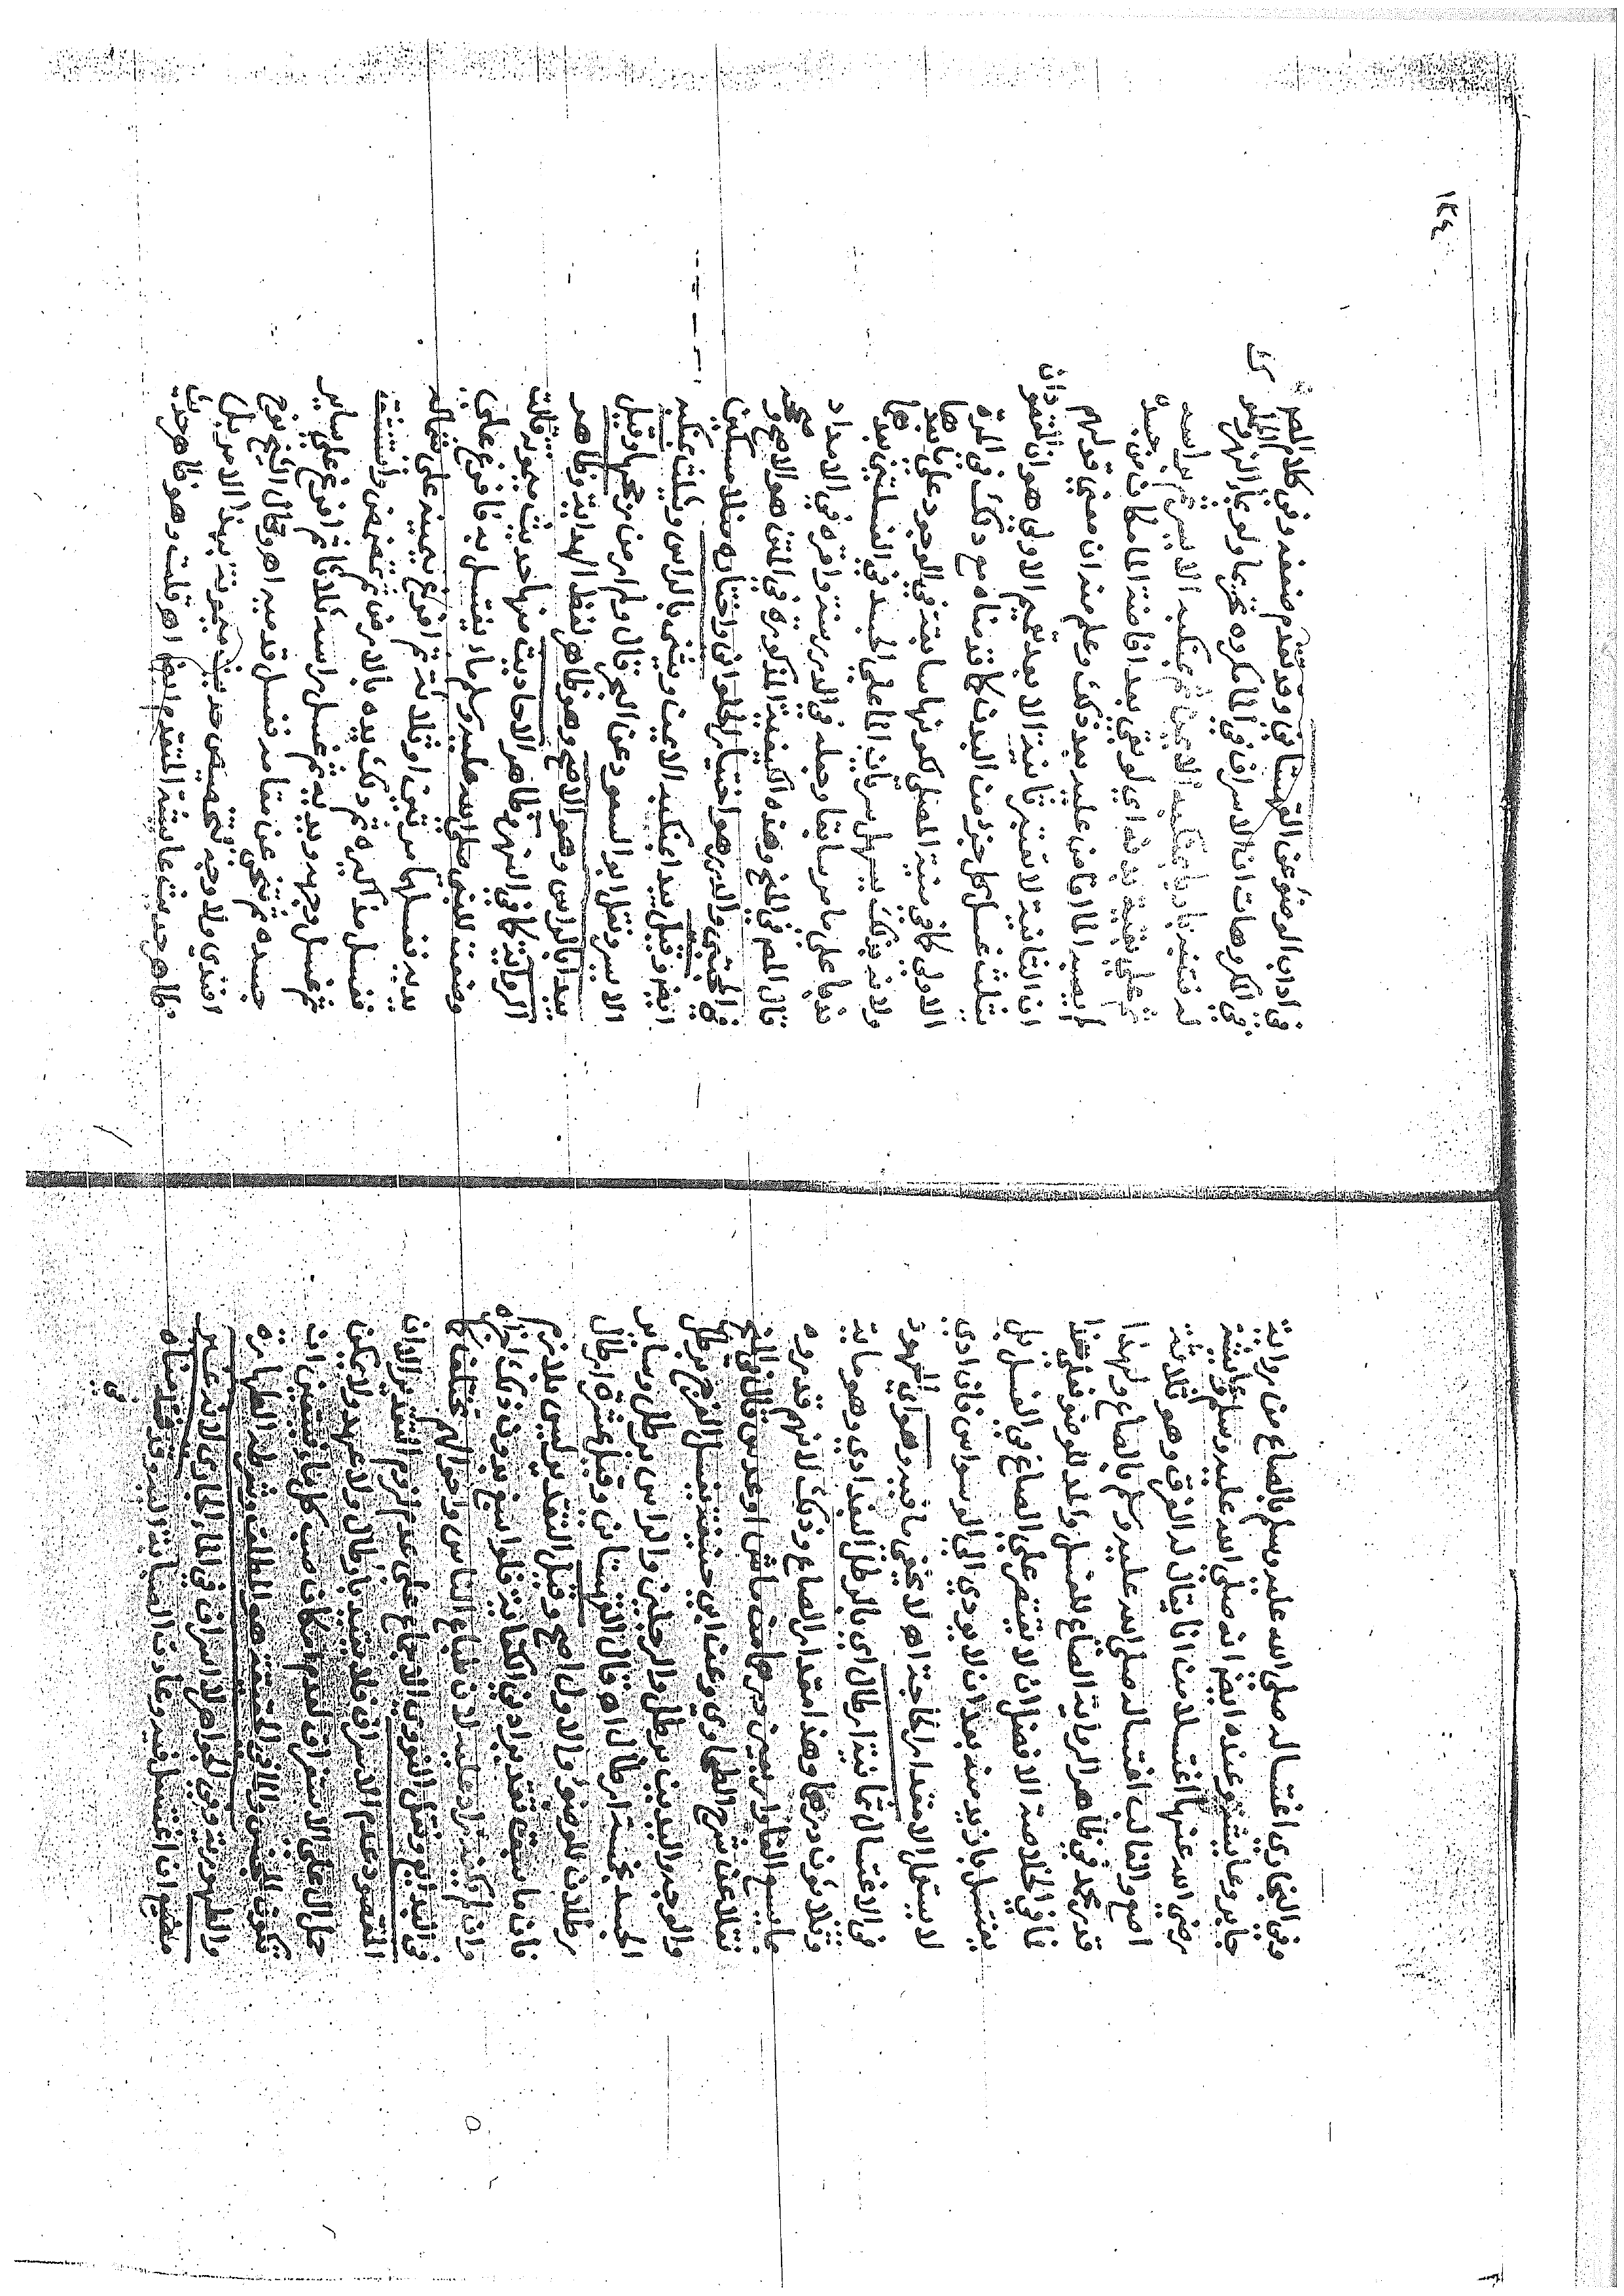 وفى البخارى اغتساله صلى الله عليه وسلم بالصاع من رواية
جابر وعايشة وعنده ايضا انه صلى الله عليه وسلم وعايشة
رضى الله عنها اغتسلا من انا يقال له الفرق وهو ثلاثة
اصع والغالب اغتساله صلى الله عليه وسلم بالصاع ولهذا
قدر محمد فى ظاهر الرواية الصاع للغسل والمد للوضوء فعلى هذا
قال فى الخلاصة الافضل ان لا يقتصر على الصاع فى الغسل بل
يغتسل بازيد منه بعد ان لا يودى الى الوسواس فان ادى
لا يستعمل الا مقدار الحاجة اه لا يخفى ما فيه وهو اى المعهود
فى الاغتسال ثمانية ارطال اى بالرطل البغدادى وهو ماية
وثلاثون درهما وهذا مقدار الصاع وذلك لانهم قدروه
ما يسع الفا واربعين درهما من ماش او عدس قال فى المنح
نقلا عن شرح الطحاوى وعن ابى حنيفة يغسل الفرج برطل
والوجه واليدين برطل والرجلين والراس برطل وساير
الجسد بخمسة ارطال اه قال القهستانى وقيل عشرة ارطال
رطلان للوضوء والاول اصح وقيل التقدير ليس بلازم
فان ما سبق تقدير ادنى الكفاية فلو اسبغ بدون ذلك اجزاه
وان لم يكفه زاد عليه لان طباع الناس واحوالهم تختلف كما
فى البدايع ونقل النووى الاجماع على عدم لزوم التقدير الا ان
المقصود عدم الاسراف فلا يتقيد بارطال ولا عهد ولا يمكن
حمل ال على الاستغراق لعدم امكان صب كل ما يتضمن ان
تكون للجنس والماهر الحقيقة هو المطلق وشرطه الطهارة
والطهورية وفى الجواهر لا اسراف فى الماء الجارى لانه غير
مضيع ان اغتسل فيه وعادت الصبابة اليه وقد قدمناه
فى
فى اداب الوضوء عن القهستانى وقد تقدم ضعفه وفى كلام المصر
فى المكروهات ان الاسراف فى الماء مكروه تحريما ولو بماء النهر وقد
له فتنبه باديا بمنكبه الايمن ثم بمنكبه الايسر ثم براسه
ثم على بقية بدنه اى لو بقى بعد افاضة الماء مكان من جسده
لم يصبه الماء افاض عليه بعد ذلك وعلم منه ان معنى قولهم
ان الثانية لا تعتبر ثانية الا بعد تعميم الاولى هو ان المقصود ان
يثلث غسل كل جزء من البدن كما قدمناه مع دلك فى المرة
الاولى كما فى منية المصلى لكونها سابقة فى الوجود على ما بعدها
ولانه بذلك يسهل سريان الماء على الجسد فى الغسلتين بعدها
ندبا على ما مر سابقا وجعله فى الدرر سنة واقره فى الامداد
قال المصر فى المنح وهذه الكيفية المذكورة فى المتن هو الاصح و
فى المجتبى والدرر هو اختيار الحلوانى واختاره منلا مسكين
ايضا وقيل يبدا بمنكبه الايمن ويثنى بالراس ويثلث بمنكبه
الايسر ونقل ابو السعود عن البحر قال ولم ار من رجحها وقيل
يبدا بالراس وهو الاصح وهو ظاهر لفظ الهداية وظاهر
الرواية كما فى النهر وظاهر الاحاديث منها حديث ميمونة قالت
وضعت للنبى صلى الله عليه وسلم ماء يغتسل به فافرغ على
يديه فغسلهما مرتين او ثلاثة ثم افرغ بيمينه على شماله
فغسل مذاكيره ثم دلك يده بالارض ثم تمضمض واستنشق
ثم غسل وجهه ويديه ثم غسل راسه ثلاثا ثم افرغ على ساير
جسده ثم تنحى عن مقامه فغسل قدميه اه وقال الشيخ نوح
افندى ولا وجه لتخصيص حديث ميمونة بهذا الامر بل
ظاهر حديث عايشة المتقدم ايضا اه قلت وهو ظاهر حديث